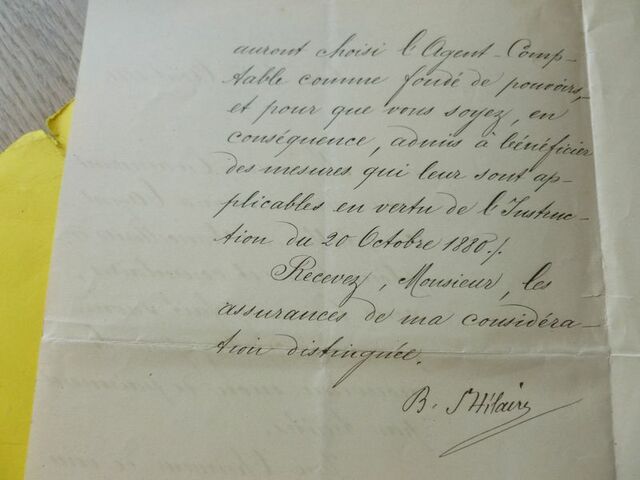 auront choisi l'Agent-Comp-
table comme fondé de pouvoirs,
et pour que vous soyez, en
conséquence, admis à bénéficier
des mesures qui leur sont ap-
plicables en vertu de l'Instruc-
tion du 20 Octobre 1880./.
Recevez, Monsieur, les
assurances de ma considéra-
tion distinguée.
B. St Hilaire